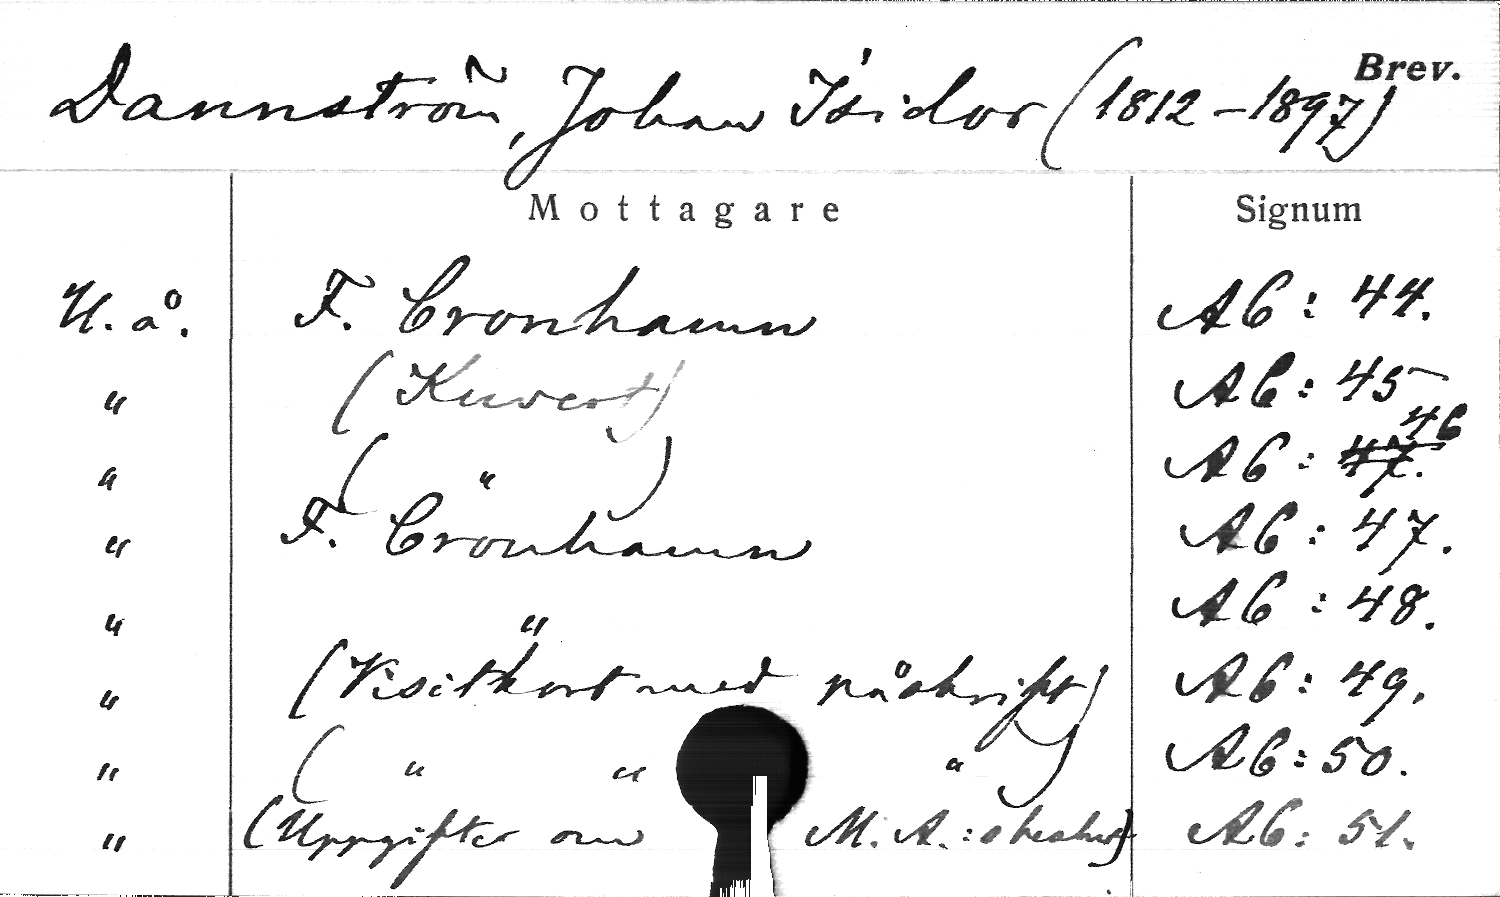 Brev.
Dannström, Johan Isidor (1812–1897)
Mottagare Signum
U. å. F. Cronhamn AC: 44.
" (Kuvert) AC: 45
" ( " ) AC: 47. 46
" F. Cronhamn AC: 47.
" " AC: 48.
" (Visitkort med påskrift) AC: 49.
" ( " " " ) AC: 50.
" (Uppgifter om M. A.: AC: 51.